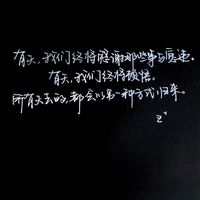 有天,我们终将感谢那些事与愿违。
有天,我们终将领悟。
所有失去的,都会以另一种方式归来。